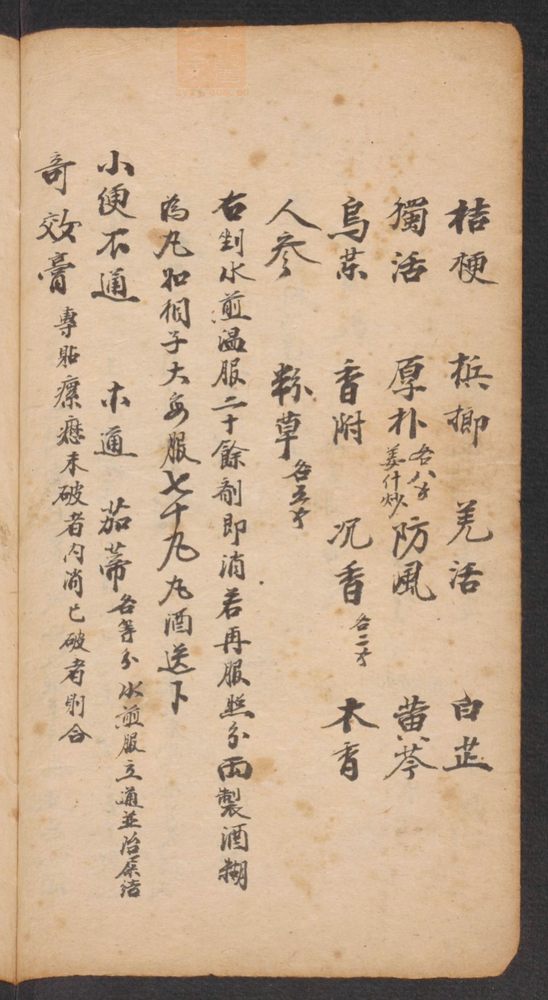 桔梗 梹榔 羌活 白芷
獨活 厚朴各八分姜什炒 防風 黄芩
烏藥 香附 沉香各二分 木香
人參 粉草各五分
右剉水煎温服二十餘劑即消若再服照分两製酒糊
為丸如梧子大每服七十丸丸酒送下
小便不通 木通 茄蒂各等分水煎服立通並治尿
奇效膏 專貼瘰癧未破者内消已破者則合